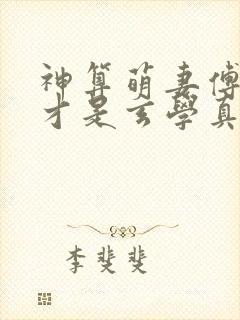 神算萌妻傅
才是玄學真
李斐斐